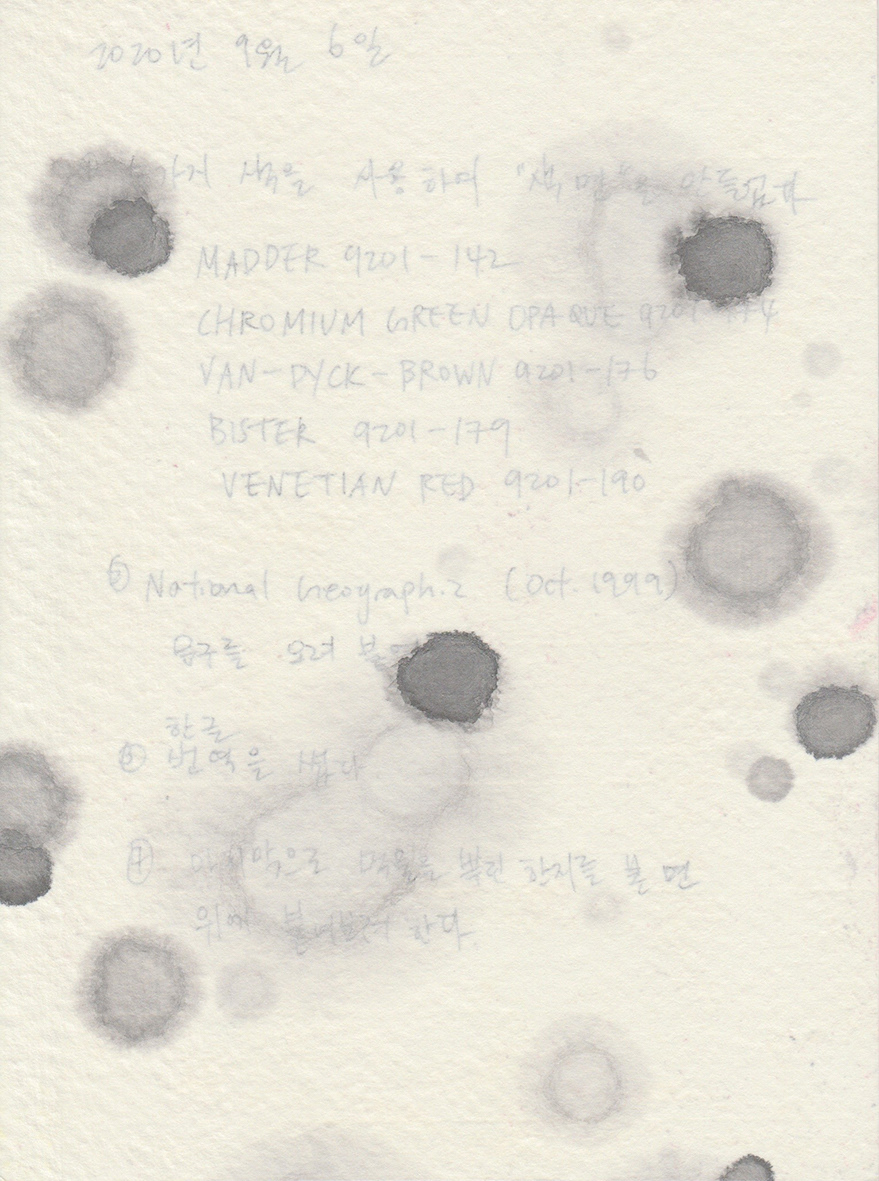 2020년 9월 6일
가지 색을 사용하여 "색 면"을 만들었다
MADDER 9201-142
CHROMIUM GREEN OPAQUE 9201-174
VAN-DYCK-BROWN 9201-176
BISTER 9201-179
VENETIAN RED 9201-190
National Geographic (Oct. 1999)
문구를 오려
한글
번역을 썼다
④ 마지막으로 먹물을 뿌린 한지를 붙 면
위에 붙여보려 한다.